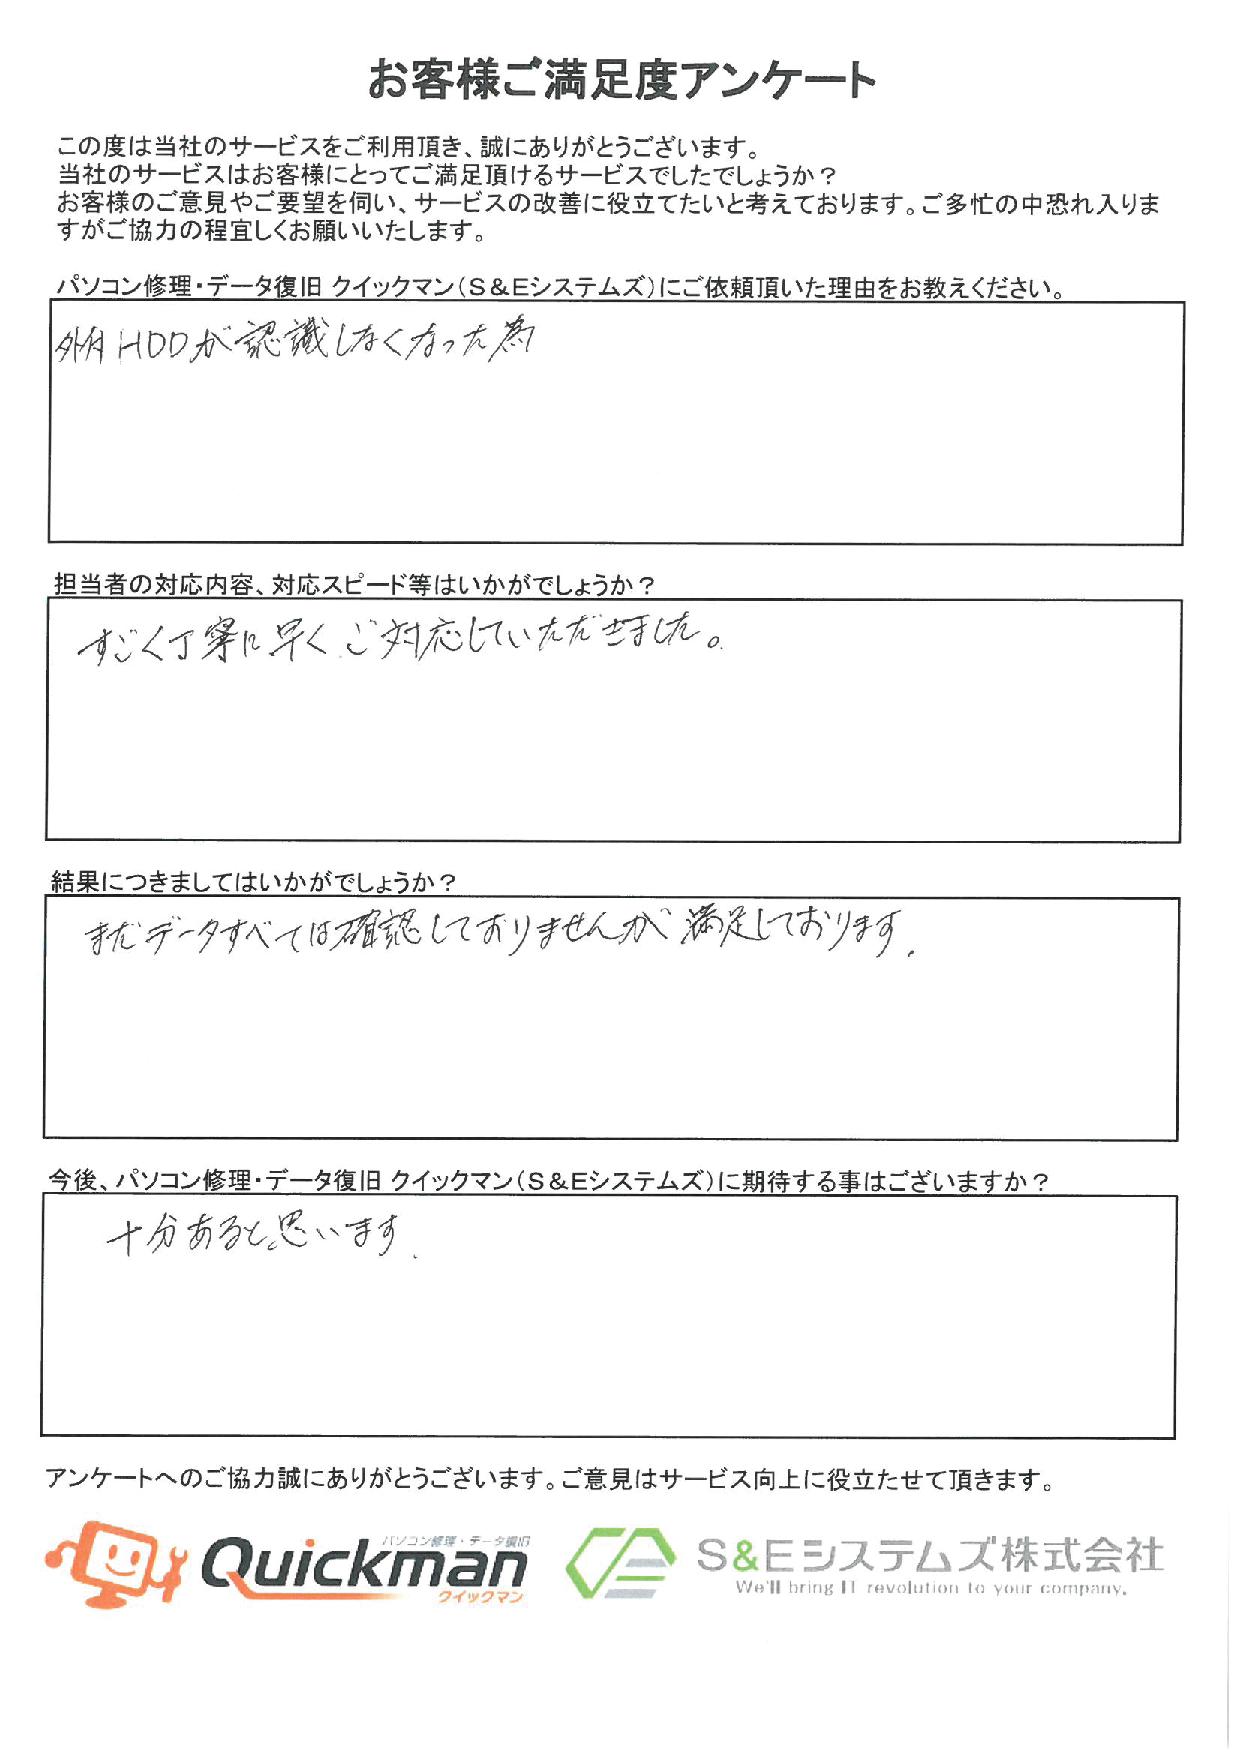 お客様ご満足度アンケート
この度は当社のサービスをご利用頂き、誠にありがとうございます。
当社のサービスはお客様にとってご満足頂けるサービスでしたでしょうか？
お客様のご意見やご要望を伺い、サービスの改善に役立てたいと考えております。ご多忙の中恐れ入りま
すがご協力の程宜しくお願いいたします。
パソコン修理・データ復旧 クイックマン（S＆Eシステムズ）にご依頼頂いた理由をお教えください。
HDDが認識しなくなった為
担当者の対応内容、対応スピード等はいかがでしょうか？
すごく丁寧に早くご対応していただきました。
結果につきましてはいかがでしょうか？
まだデータすべては確認しておりませんが満足しております.
今後、パソコン修理・データ復旧 クイックマン（S＆Eシステムズ）に期待する事はございますか？
十分あると思います.
アンケートへのご協力誠にありがとうございます。ご意見はサービス向上に役立たせて頂きます。
パソコン修理・データ復旧
Quickman
クイックマン
S&Eシステムズ株式会社
We'll bring IT revolution to your company.